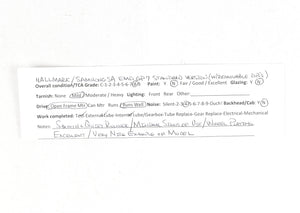 HALLMARK / SAMSONGSA EMD GP7 STANDARD VERSION /
Overall condition/TCA Grade: C-1-2-3-4-5-6-7-8 Paint: Y N Fair / Good / Excellent Glazing: Y N
Tarnish: None Mild Moderate / Heavy Lighting: Front Rear Other
Drive: Open Frame Mtr Can Mtr Runs Runs Well Noise: Silent-2-3-4-5-6-7-8-9-Ouch! Backhead/Cab: Y N
Work completed: Test External-Lube Internal-Lube/Gearbox-Tube Replace-Gear Replace-Electrical-Mechanical
Notes: Smooth Quiet Runner / Minimal Signs of Use / Wheel Plating
Excellent / Very Nice Example of Model